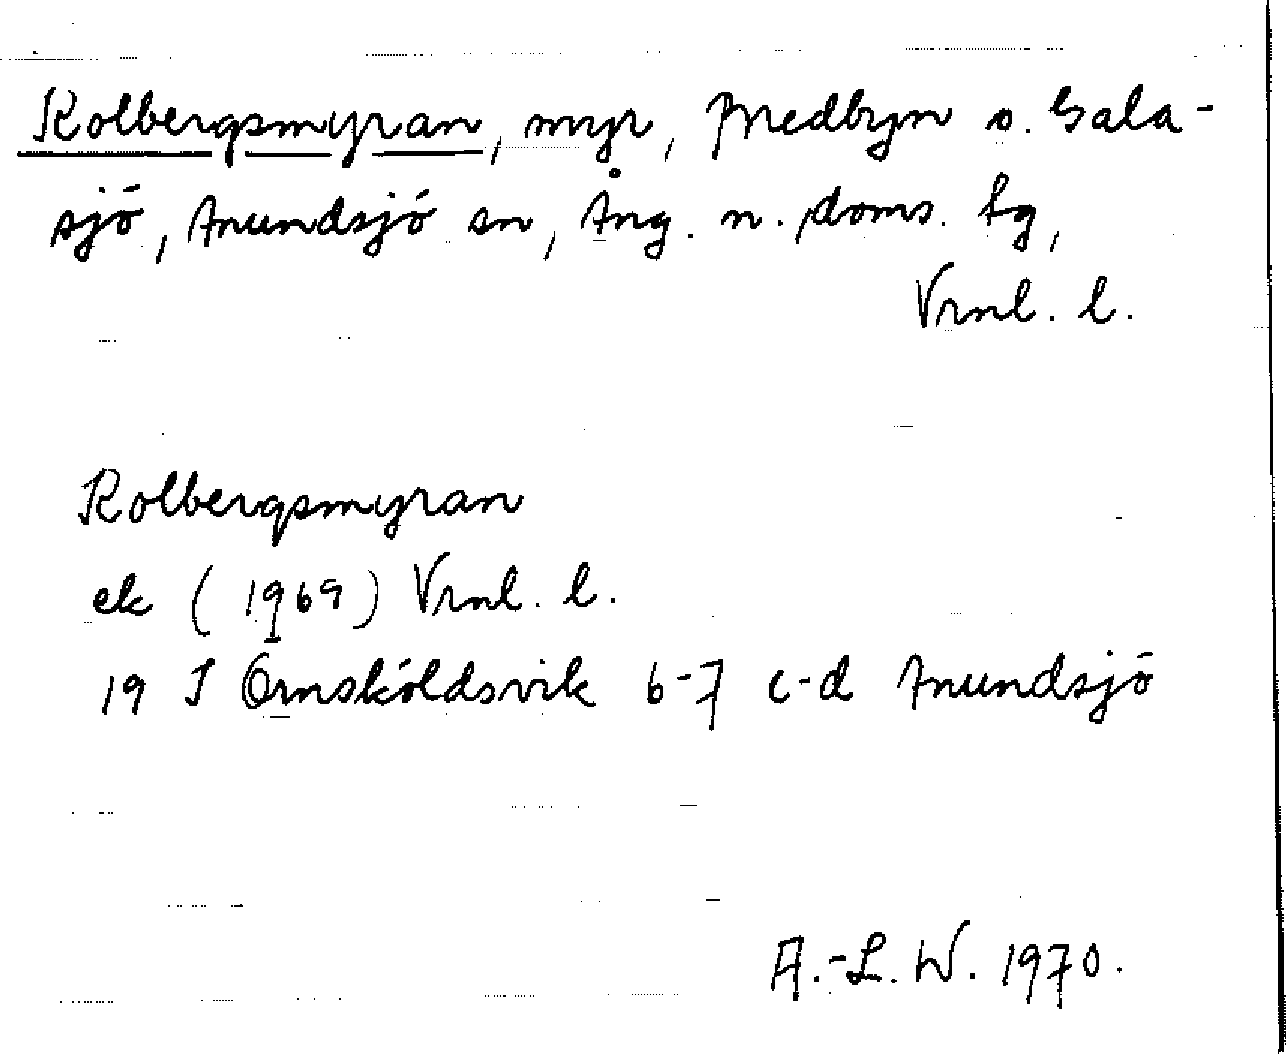 Kolbergsmyran, myr, Medbyn o. Gala-
sjö, Anundsjö sn, Ång. n. doms. lg,
Vrnl. l.
Kolbergsmyran
ek (1969) Vrnl. l.
19 J Örnsköldsvik 6-7 c-d Anundsjö
A.-L. W. 1970.